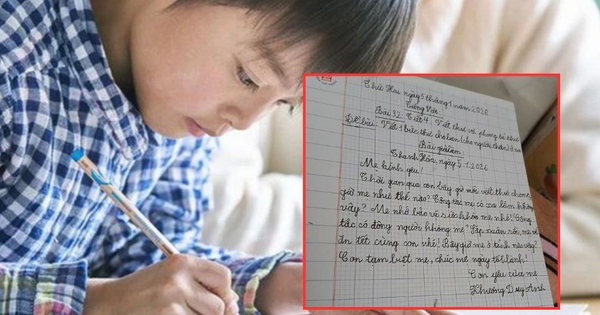 Thứ Hai ngày 5 tháng 1 năm 2026
Tiếng Việt
Bài 32: Tiết 4: Viết thư và phong bì thư
Đề bài: Viết 1 bức thư cho bạn (cho người thân) ở xa
Bài làm
Thanh Hóa, ngày 5.1.2026
Mẹ kính yêu!
Thời gian qua con bây giờ mới viết thư cho mẹ
giờ mẹ như thế nào? Công tác mẹ có cao lắm không
vậy? Mẹ nhớ bảo vệ sức khỏe mẹ nhé! Công
tác có đông người không mẹ? Sắp xuân rồi, mẹ về
ăn tết cùng con nhé! Bây giờ mẹ ở tỉnh nào vậy?
Con tạm biệt mẹ, chúc mẹ ngày tốt lành!
Con yêu của mẹ
Khương Duy Anh